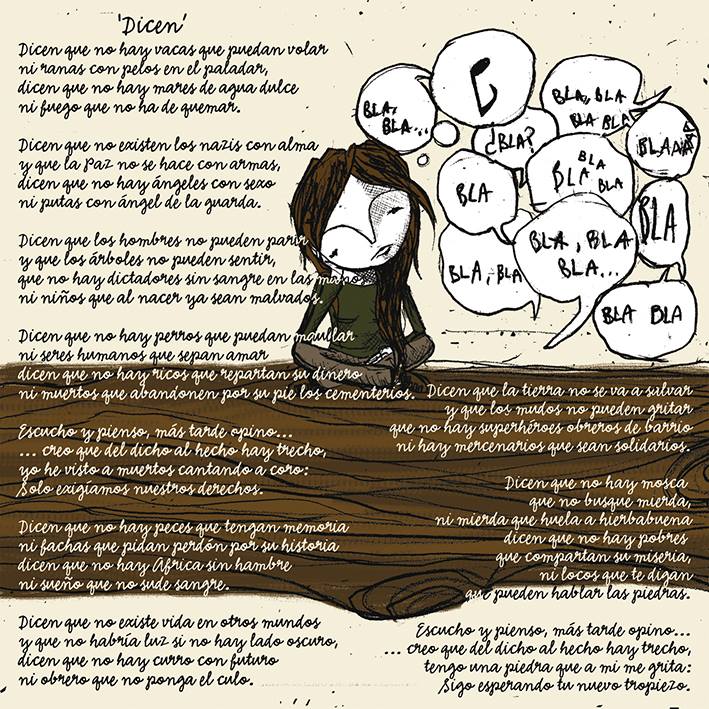 'Dicen'
Dicen que no hay vacas que puedan volar
ni ranas con pelos en el paladar,
dicen que no hay mares de agua dulce
ni fuego que no ha de quemar.
Dicen que no existen los nazis con alma
y que la Paz no se hace con armas,
dicen que no hay ángeles con sexo
ni putas con ángel de la guarda.
Dicen que los hombres no pueden parir
y que los árboles no pueden sentir,
que no hay dictadores sin sangre en las manos
ni niños que al nacer ya sean malvados.
Dicen que no hay perros que puedan maullar
ni seres humanos que sepan amar
dicen que no hay ricos que repartan su dinero
ni muertos que abandonen por su pie los cementerios.
Escucho y pienso, más tarde opino...
... creo que del dicho al hecho hay trecho,
yo he visto a muertos cantando a coro:
Solo exigíamos nuestros derechos.
Dicen que no hay peces que tengan memoria
ni fachas que pidan perdón por su historia
dicen que no hay Africa sin hambre
ni sueño que no sude sangre.
Dicen que no existe vida en otros mundos
y que no habría luz si no hay lado oscuro,
dicen que no hay curro con futuro
ni obrero que no ponga el culo.
Dicen que la tierra no se va a silvar
y que los mudos no pueden gritar
que no hay superhéroes obreros de barrio
ni hay mercenarios que sean solidarios.
Dicen que no hay mosca
que no busque mierda,
ni mierda que huela a hierbabuena
dicen que no hay pobres
que compartan su miseria,
ni locos que te digan
que pueden hablar las piedras.
Escucho y pienso, más tarde opino...
... creo que del dicho al hecho hay trecho,
tengo una piedra que a mi me grita:
Sigo esperando tu nuevo tropiezo.
BLA,
BLA...
BLA, BLA
BLA BLA
¿BLA?
BLAAAA
BLA
BLA
BLA
BLA
BLA
BLA, BLA
BLA, BLA
BLA...
BLA BLA